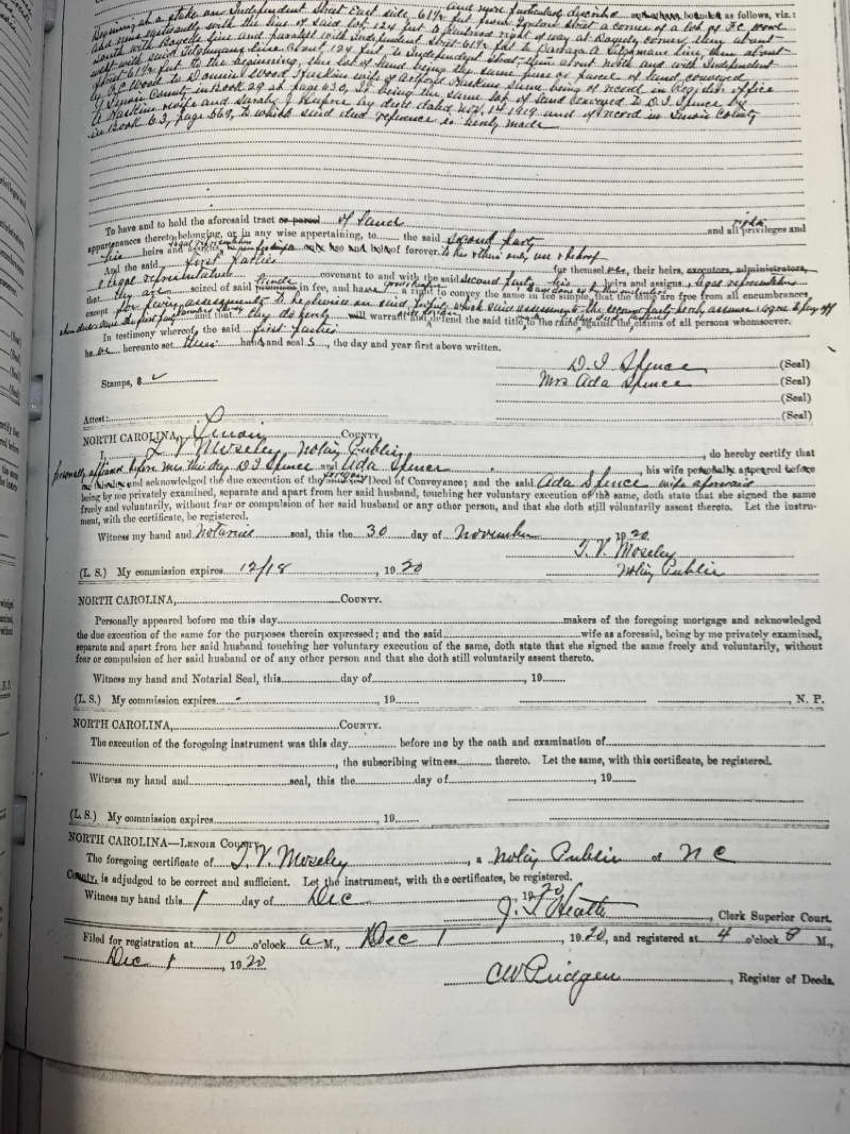 Beginning at a stake on Independent Street East side 61½ feet from Gordon Street a corner of a lot of F.C. Wood
and runs eastwardly with the line of said lot, 124 feet to railroad right of way at Bagody corner, then about
north with Bagody line and parallel with Independent Street 61½ feet to Barbara A line, then about
west with said line about 124 feet to Independent Street, then about North and with Independent
Street 61½ feet to the beginning, this lot of land being the same piece or parcel of land conveyed
by F.C. Wood to Wood Haskins wife of Haskins same being of record in Register office
of Lenoir County in Book 29 at page 630, It being the same lot of land conveyed to D.I. Spence by
Haskins wife and Sarah J by deed dated Nov. 1st 1919 and of record in Lenoir County
in Book 63, page 569, to which said deed reference is hereby made
To have and to hold the aforesaid tract or parcel of land and all rights privileges and
appurtenances thereto belonging, or in any wise appertaining, to the said second party
his heirs and legal representatives forever to his their only use & behoof
And the said first parties for themselves, their heirs, executors, administrators,
& legal representatives covenant to and with the said second party his heirs and assigns legal representatives
that they are seized of said premises in fee, and have a right to convey the same in fee simple, that the same are free from all encumbrances,
except for paving assessments to be levied on said which said assessments the second party hereby assume & agree to pay off
and that they do hereby will warrant and defend the said title to the same against the claims of all persons whomsoever.
In testimony whereof, the said first parties
have hereunto set their hands and seals, the day and year first above written.
D. I. Spence (Seal)
Stamps, $ Mrs Ada Spence (Seal)
(Seal)
Attest: (Seal)
NORTH CAROLINA, Lenoir COUNTY.
I, T. V. Moseley, Notary Public, do hereby certify that
personally appeared before me this day D I Spence and Ada Spence, his wife personally appeared before
me this day and acknowledged the due execution of the foregoing Deed of Conveyance; and the said Ada Spence wife aforesaid
being by me privately examined, separate and apart from her said husband, touching her voluntary execution of the same, doth state that she signed the same
freely and voluntarily, without fear or compulsion of her said husband or any other person, and that she doth still voluntarily assent thereto. Let the instru-
ment, with the certificate, be registered.
Witness my hand and Notarial seal, this the 30 day of November, 1920.
T. V. Moseley
(L. S.) My commission expires 12/18, 1920 Notary Public
NORTH CAROLINA, COUNTY.
Personally appeared before me this day makers of the foregoing mortgage and acknowledged
the due execution of the same for the purposes therein expressed; and the said wife as aforesaid, being by me privately examined,
separate and apart from her said husband touching her voluntary execution of the same, doth state that she signed the same freely and voluntarily, without
fear or compulsion of her said husband or of any other person and that she doth still voluntarily assent thereto.
Witness my hand and Notarial Seal, this day of , 19
(L. S.) My commission expires , 19 , N. P.
NORTH CAROLINA, COUNTY.
The execution of the foregoing instrument was this day before me by the oath and examination of
, the subscribing witness thereto. Let the same, with this certificate, be registered.
Witness my hand and seal, this the day of , 19
(L. S.) My commission expires , 19
NORTH CAROLINA—LENOIR COUNTY.
The foregoing certificate of T. V. Moseley, a Notary Public of N C
County, is adjudged to be correct and sufficient. Let the instrument, with the certificates, be registered.
Witness my hand this 1 day of Dec 1920
J. T. Heath, Clerk Superior Court.
Filed for registration at 10 o'clock a M., Dec 1, 1920, and registered at 4 o'clock P M.,
Dec 1, 1920
CW Pridgen, Register of Deeds.